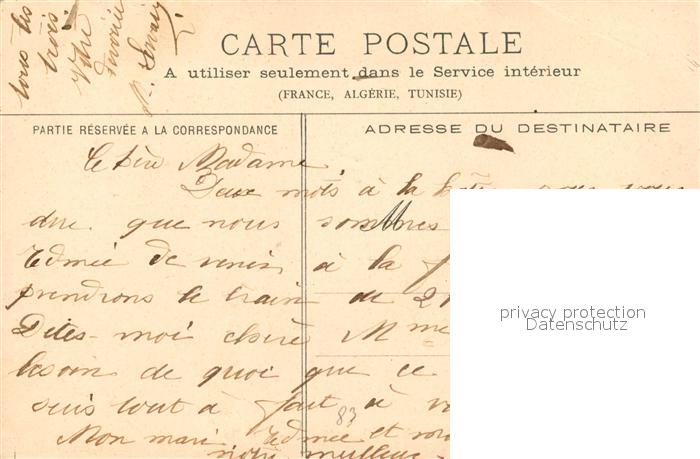 CARTE POSTALE
A utiliser seulement dans le Service intérieur
(FRANCE, ALGÉRIE, TUNISIE)
PARTIE RÉSERVÉE A LA CORRESPONDANCE
ADRESSE DU DESTINATAIRE
tous les
trois.
Votre
dévouée
Madame
Deux mots à la pour vous
dire que nous sommes
Edmée de venir à la
prendrons le train de 21
Dites-moi chère Mme
besoin de quoi que ce
suis tout à fait à
83
Mon mari Edmée et
notre meilleur
privacy protection
Datenschutz